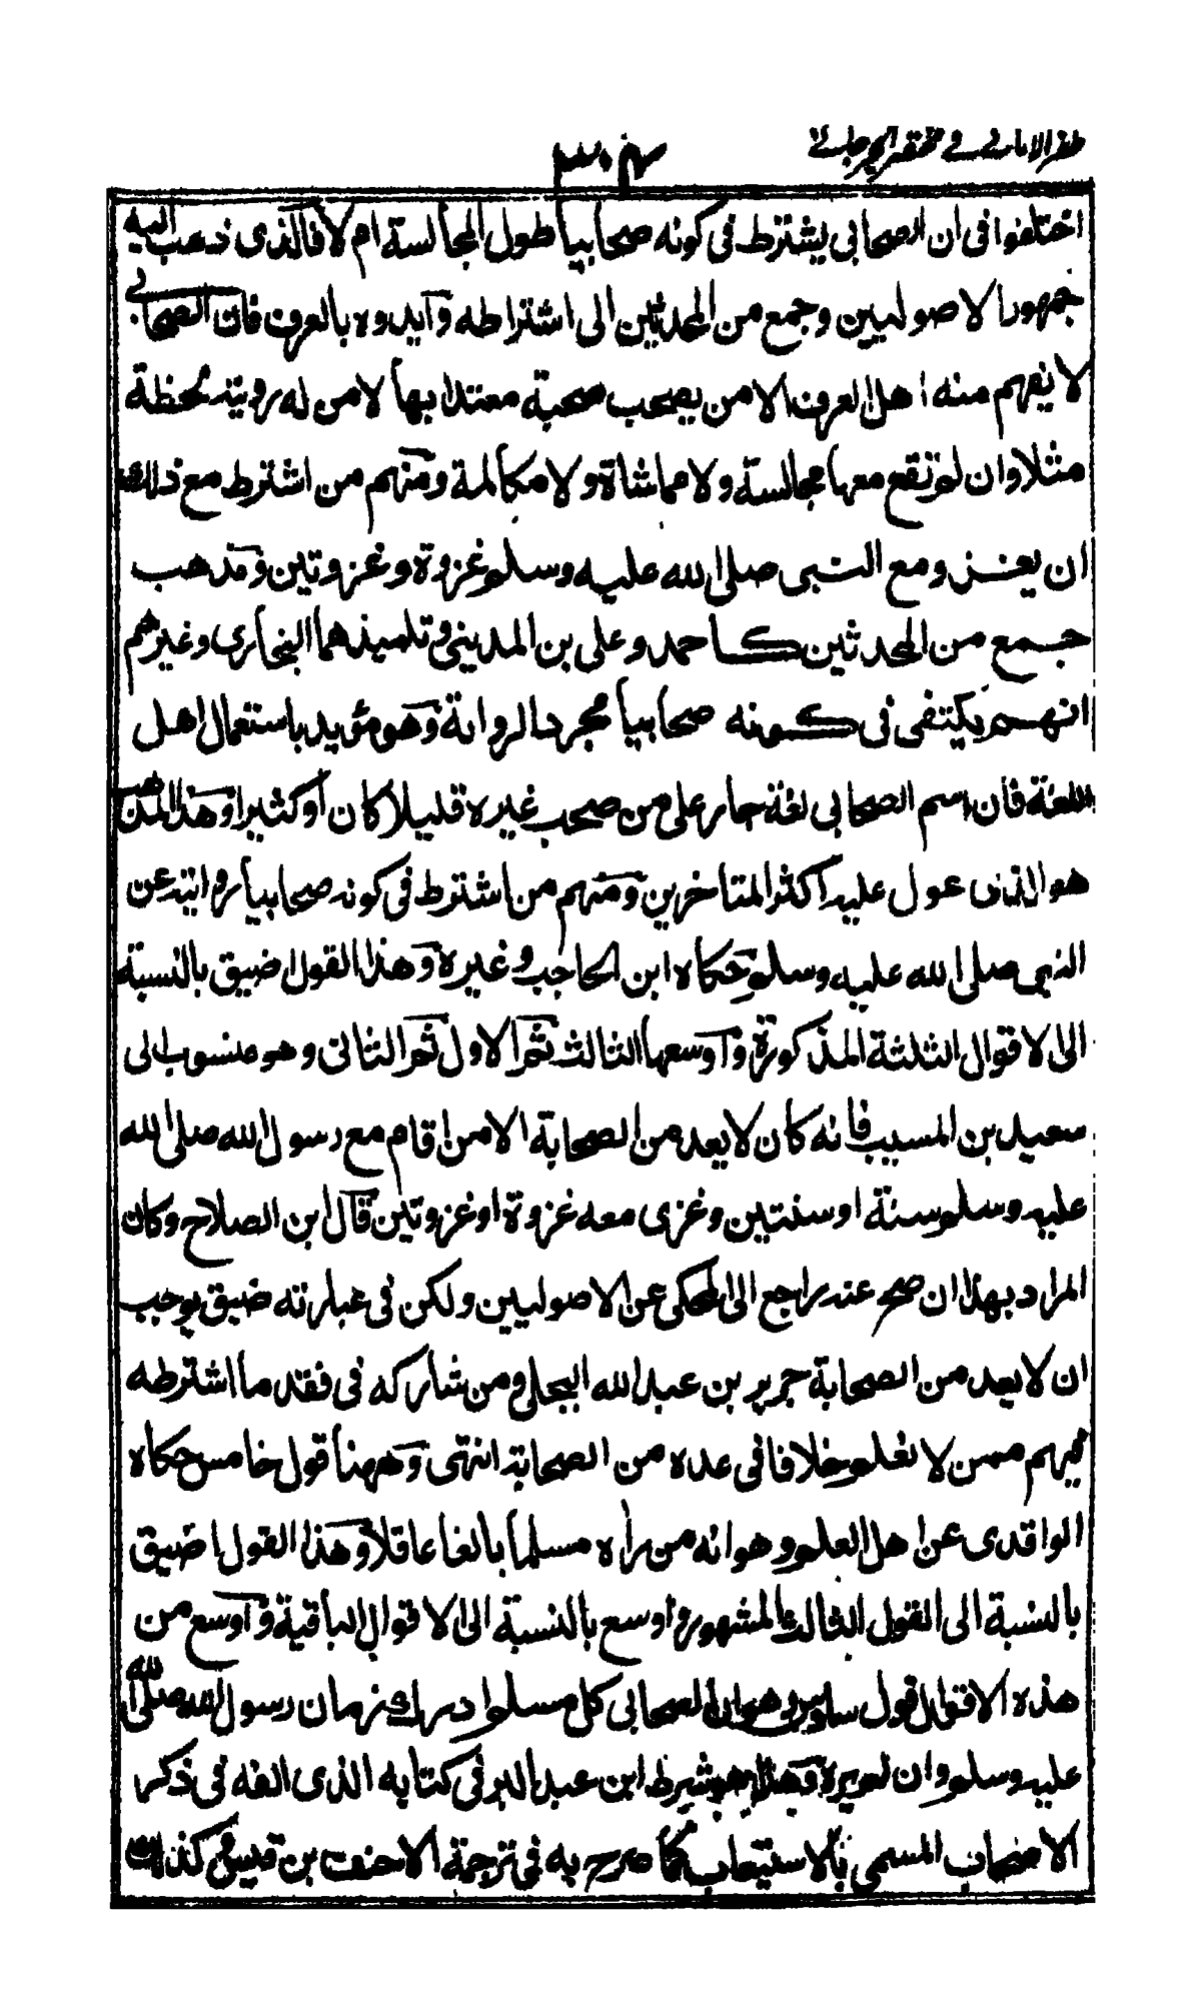 ظفر الامانی فے مختصر الجرجانے
اختلفوا فی ان الصحابی یشترط فی کونه صحابیا طول المجالسة ام لا فالذی ذهب الیه
جمهور الاصولیین وجمع من المحدثین الی اشتراطه وایدوه بالعرف فان الصحابی
لا یفهم منه اهل العرف الا من یصحب صحبة معتدا بها لا من له رویته لحظة
مثلا وان لم تقع معها مجالسة ولا مماشاة ولا مکالمة ومنهم من اشترط مع ذلک
ان یغزو مع النبی صلی الله علیه وسلم غزوة وغزوتین ومذهب
جمع من المحدثین کاحمد وعلی بن المدینی وتلمیذهما البخاری وغیرهم
انهم یکتفی فی کونه صحابیا مجرد الروایة وهو مؤید باستعمال اهل
اللغة فان اسم الصحابی لغة جار علی من صحب غیره قلیلا کان او کثیرا وهذا المذهب
هو الذی عول علیه اکثر المتاخرین ومنهم من اشترط فی کونه صحابیا روایته عن
النبی صلی الله علیه وسلم حکاه ابن الحاجب وغیره وهذا القول اضیق بالنسبة
الی الاقوال الثلثة المذکورة واوسعها الثالث ثم الاول ثم الثانی وهو منسوب الی
سعید بن المسیب فانه کان لا یعد من الصحابة الا من اقام مع رسول الله صلی الله
علیه وسلم سنة او سنتین وغزی معه غزوة او غزوتین قال ابن الصلاح وکان
المراد بهذا ان صح عنه راجع الی المحکی عن الاصولیین ولکن فی عبارته ضیق یوجب
ان لا یعد من الصحابة جریر بن عبد الله البجلی ومن شارکه فی فقد ما اشترطه
فیهم ممن لا نعلم خلافا فی عده من الصحابة انتهی وههنا قول خامس حکاه
الواقدی عن اهل العلم وهو انه من راه مسلما بالغا عاقلا وهذا القول اضیق
بالنسبة الی القول الثالث المشهور واوسع بالنسبة الی الاقوال الباقیة واوسع من
هذه الاقوال قول سادس وهو ان الصحابی کل مسلم ادرک زمان رسول الله صلی الله
علیه وسلم وان لم یره وهذا هو شرط ابن عبد البر فی کتابه الذی الفه فی ذکر
الاصحاب المسمی بالاستیعاب کما صرح به فی ترجمة الاحنف بن قیس وکذلک